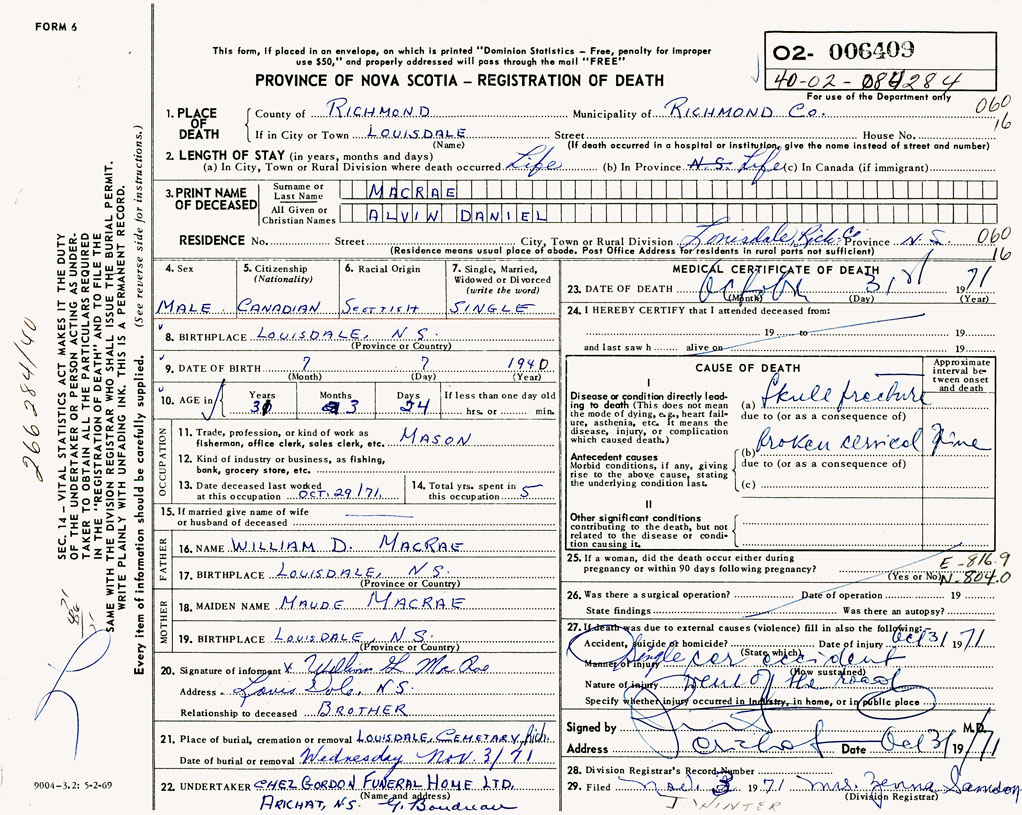 FORM 6
This form, if placed in an envelope, on which is printed "Dominion Statistics – Free, penalty for improper
use $50," and properly addressed will pass through the mail "FREE"
PROVINCE OF NOVA SCOTIA – REGISTRATION OF DEATH
02- 006409
40-02-084284
For use of the Department only
060
16
1. PLACE OF DEATH
County of RICHMOND Municipality of RICHMOND Co.
If in City or Town LOUISDALE Street House No.
(Name) (If death occurred in a hospital or institution, give the name instead of street and number)
2. LENGTH OF STAY (in years, months and days)
(a) In City, Town or Rural Division where death occurred Life (b) In Province N.S. Life (c) In Canada (if immigrant)
3. PRINT NAME OF DECEASED
Surname or Last Name MACRAE
All Given or Christian Names ALVIN DANIEL
RESIDENCE No. Street City, Town or Rural Division Louisdale Rich. Co Province N.S. 060
(Residence means usual place of abode. Post Office Address for residents in rural parts not sufficient) 16
4. Sex
MALE
5. Citizenship
(Nationality)
CANADIAN
6. Racial Origin
SCOTTISH
7. Single, Married,
Widowed or Divorced
(write the word)
SINGLE
8. BIRTHPLACE LOUISDALE, N S.
(Province or Country)
9. DATE OF BIRTH 7 7 1940
(Month) (Day) (Year)
10. AGE in Years Months Days If less than one day old
31 3 24 hrs. or min.
OCCUPATION
11. Trade, profession, or kind of work as MASON
fisherman, office clerk, sales clerk, etc.
12. Kind of industry or business, as fishing,
bank, grocery store, etc.
13. Date deceased last worked
at this occupation OCT. 29/71.
14. Total yrs. spent in
this occupation 5
15. If married give name of wife
or husband of deceased
FATHER
16. NAME WILLIAM D. MACRAE
17. BIRTHPLACE LOUISDALE, N S.
(Province or Country)
MOTHER
18. MAIDEN NAME MAUDE MACRAE
19. BIRTHPLACE LOUISDALE, N S.
(Province or Country)
20. Signature of informant x William G. MacRae
Address Louisdale, N.S.
Relationship to deceased BROTHER
21. Place of burial, cremation or removal LOUISDALE, CEMETARY, Rich.
Date of burial or removal Wednesday Nov. 3/71
22. UNDERTAKER CHEZ GORDON FUNERAL HOME LTD.
(Name and address)
ARICHAT, N.S. G. Boudreau
MEDICAL CERTIFICATE OF DEATH
23. DATE OF DEATH October 31 1971
(Month) (Day) (Year)
24. I HEREBY CERTIFY that I attended deceased from:
19 to 19
and last saw h alive on 19
CAUSE OF DEATH
Approximate interval between onset and death
I
Disease or condition directly leading to death (This does not mean
the mode of dying, e.g., heart failure, asthenia, etc. It means the
disease, injury, or complication
which caused death.)
(a) Skull fracture
due to (or as a consequence of)
Antecedent causes
Morbid conditions, if any, giving
rise to the above cause, stating
the underlying condition last.
(b) broken cervical spine
due to (or as a consequence of)
(c)
II
Other significant conditions
contributing to the death, but not
related to the disease or condition causing it.
25. If a woman, did the death occur either during
pregnancy or within 90 days following pregnancy?
(Yes or No)
E-816.9
N-804.0
26. Was there a surgical operation? Date of operation 19
State findings Was there an autopsy?
27. If death was due to external causes (violence) fill in also the following:
Accident, suicide or homicide? Date of injury Oct 31 1971
(State which)
Manner of injury Single car accident
(How sustained)
Nature of injury went off the road
Specify whether injury occurred in Industry, in home, or in public place
Signed by M.D.
Address Arichat Date Oct 31 19/71
28. Division Registrar's Record Number
29. Filed Nov. 3 1971 Mrs. Zenna Samson
(Division Registrar)
J WINTER
SEC. 14 – VITAL STATISTICS ACT MAKES IT THE DUTY
OF THE UNDERTAKER OR PERSON ACTING AS UNDERTAKER TO OBTAIN ALL THE PARTICULARS REQUIRED
IN THE "REGISTRATION OF DEATH" AND TO FILE THE
SAME WITH THE DIVISION REGISTRAR WHO SHALL ISSUE THE BURIAL PERMIT.
WRITE PLAINLY WITH UNFADING INK. THIS IS A PERMANENT RECORD.
Every item of information should be carefully supplied. (See reverse side for instructions.)
266284/40
9004-3.2: 5-2-69